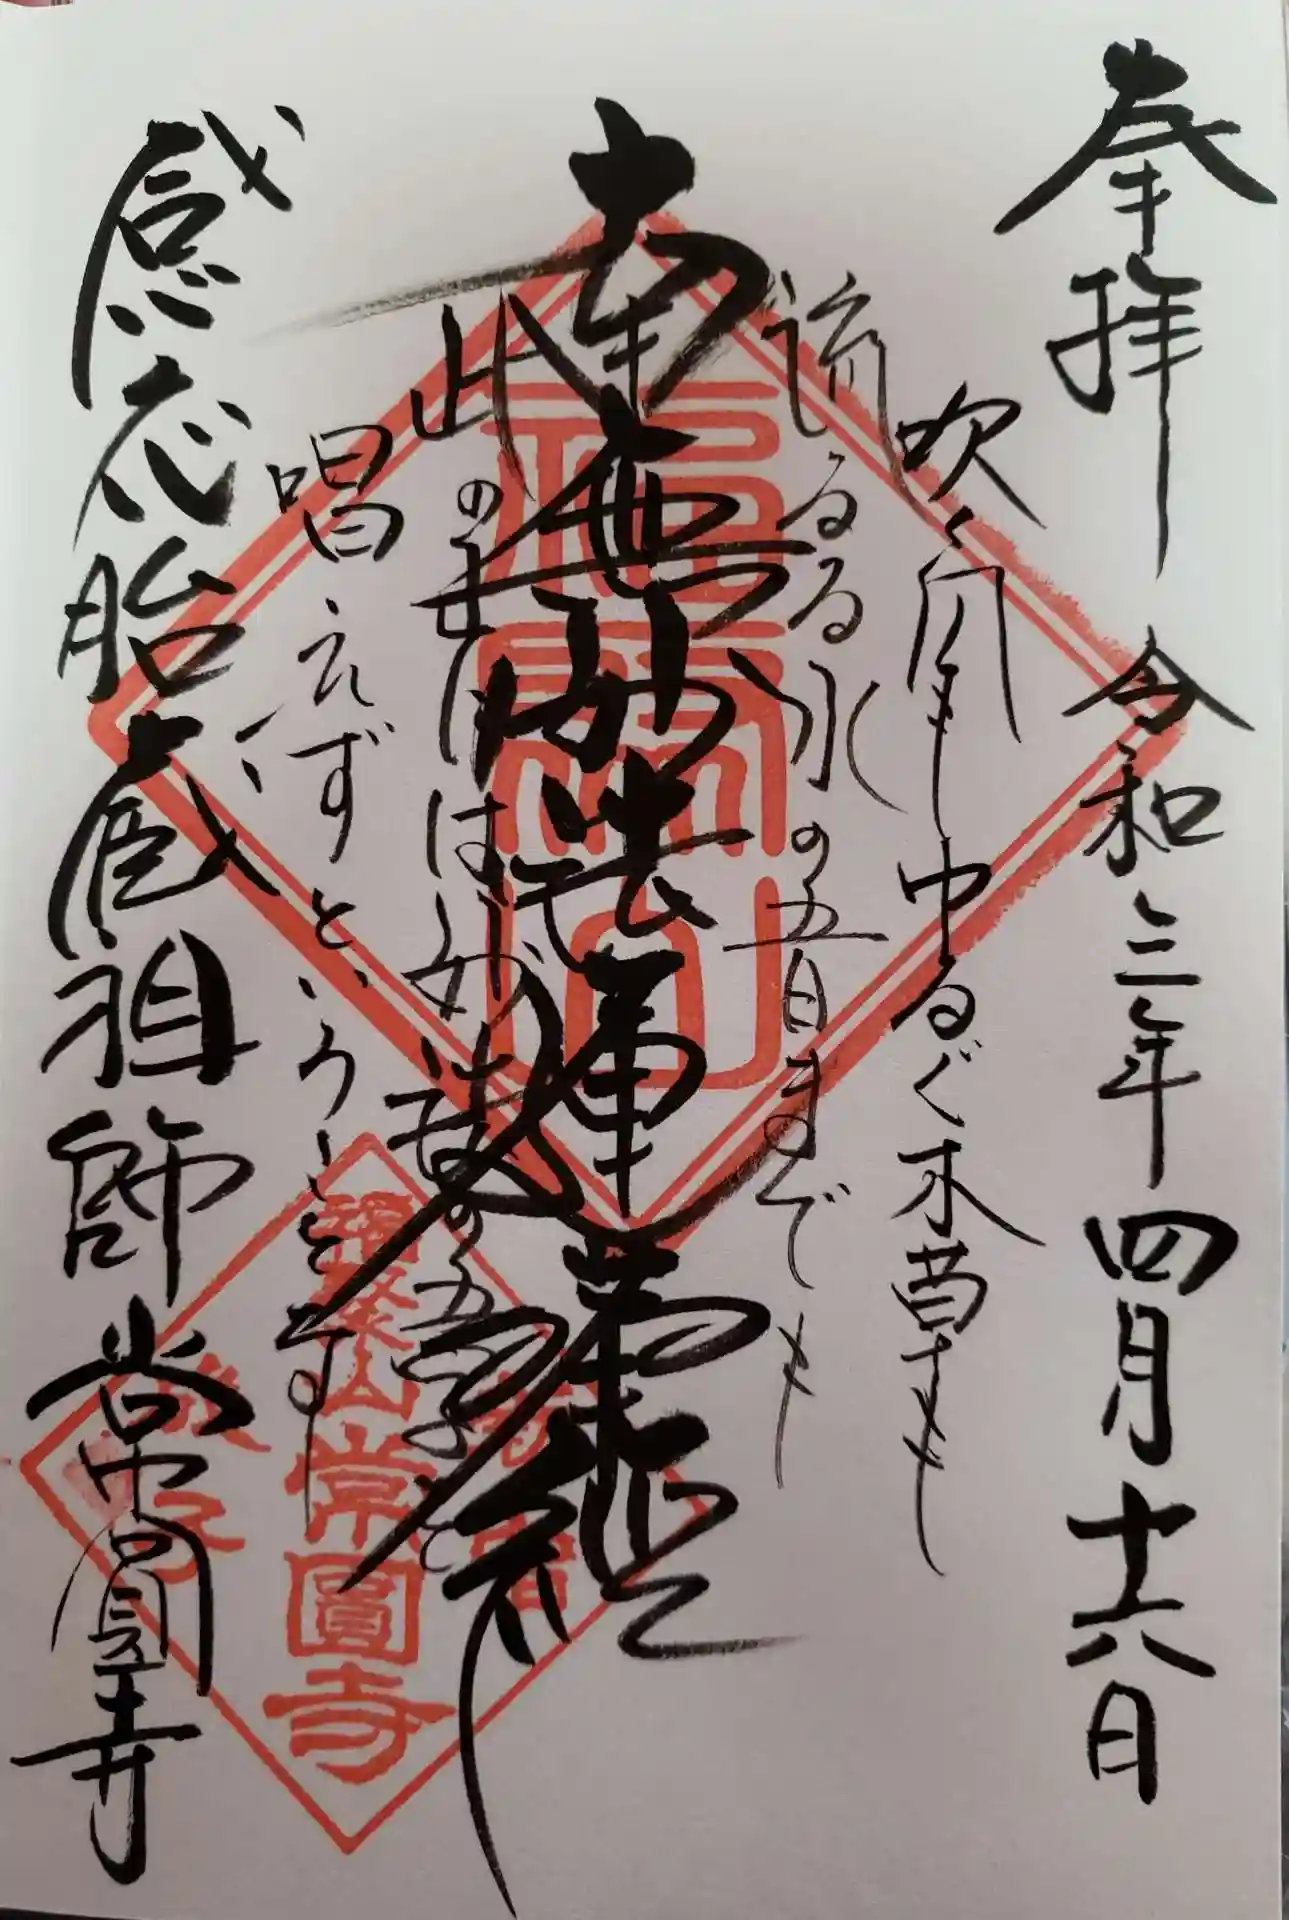 奉拝 令和三年四月十六日
吹く風もゆるぐ木草も
流るる水の五日までも
南無妙法蓮華経
此の
は妙法の五字を
唱えずということなし
感応胎蔵祖師 常圓寺
福聚山
常圓寺